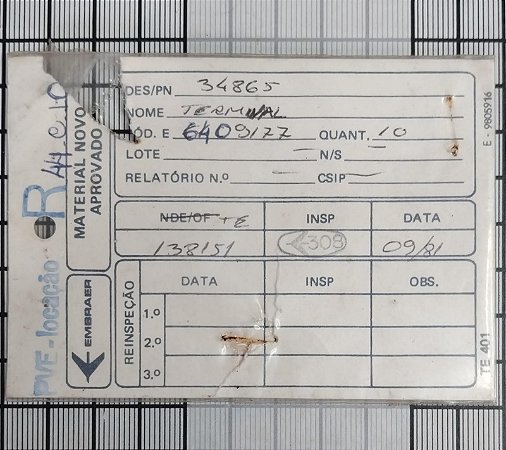 DES/PN 34865
NOME TERMINAL
CÓD. E 6409177 QUANT. 10
LOTE — N/S —
RELATÓRIO N.º — CSIP —
NDE/OF TE INSP DATA
138151 308 09/81
REINSPEÇÃO
DATA INSP OBS.
1.º
2.º
3.º
MATERIAL NOVO
APROVADO
EMBRAER
R
PVF - locação
E - 9805916
TE 401